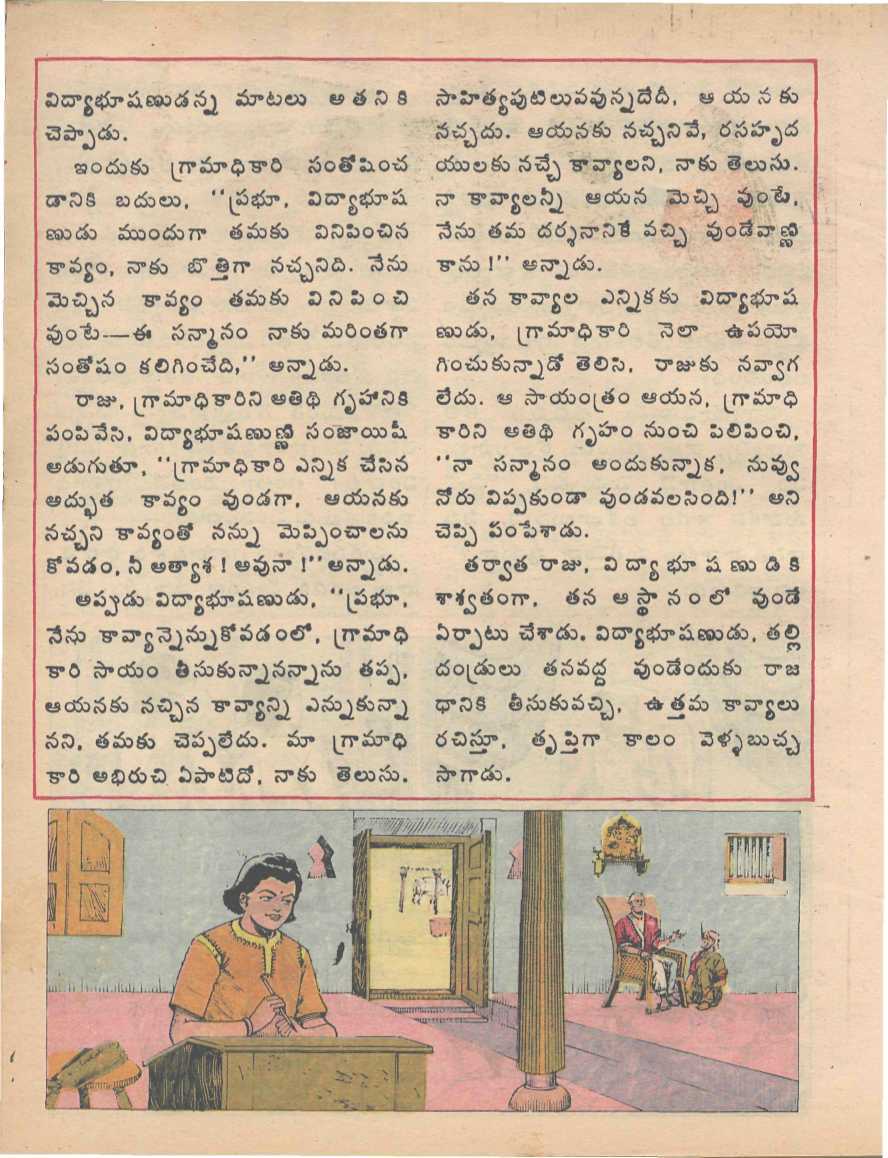 విద్యాభూషణుడన్న మాటలు అతనికి
చెప్పాడు.
ఇందుకు గ్రామాధికారి సంతోషించ
డానికి బదులు, ‘‘ప్రభూ, విద్యాభూష
ణుడు ముందుగా తమకు వినిపించిన
కావ్యం, నాకు బొత్తిగా నచ్చనిది. నేను
మెచ్చిన కావ్యం తమకు వినిపించి
వుంటే—ఈ సన్మానం నాకు మరింతగా
సంతోషం కలిగించేది,’’ అన్నాడు.
రాజు, గ్రామాధికారిని అతిథి గృహానికి
పంపివేసి, విద్యాభూషణుణ్ణి సంజాయిషీ
అడుగుతూ, ‘‘గ్రామాధికారి ఎన్నిక చేసిన
అద్భుత కావ్యం వుండగా, ఆయనకు
నచ్చని కావ్యంతో నన్ను మెప్పించాలను
కోవడం, నీ అత్యాశ ! అవునా !’’ అన్నాడు.
అప్పుడు విద్యాభూషణుడు, ‘‘ప్రభూ,
నేను కావ్యాన్నెన్నుకోవడంలో, గ్రామాధి
కారి సాయం తీసుకున్నానన్నాను తప్ప,
ఆయనకు నచ్చిన కావ్యాన్ని ఎన్నుకున్నా
నని, తమకు చెప్పలేదు. మా గ్రామాధి
కారి అభిరుచి ఏపాటిదో, నాకు తెలుసు.
సాహిత్యపుటిలువవున్నదేదీ, ఆయనకు
నచ్చదు. ఆయనకు నచ్చనివే, రసహృద
యులకు నచ్చే కావ్యాలని, నాకు తెలుసు.
నా కావ్యాలన్నీ ఆయన మెచ్చి వుంటే,
నేను తమ దర్శనానికే వచ్చి వుండేవాణ్ణి
కాను !’’ అన్నాడు.
తన కావ్యాల ఎన్నికకు విద్యాభూష
ణుడు, గ్రామాధికారి నెలా ఉపయో
గించుకున్నాడో తెలిసి, రాజుకు నవ్వాగ
లేదు. ఆ సాయంత్రం ఆయన, గ్రామాధి
కారిని అతిథి గృహం నుంచి పిలిపించి,
‘‘నా సన్మానం అందుకున్నాక, నువ్వు
నోరు విప్పకుండా వుండవలసింది!’’ అని
చెప్పి పంపేశాడు.
తర్వాత రాజు, విద్యాభూషణుడికి
శాశ్వతంగా, తన ఆస్థానంలో వుండే
ఏర్పాటు చేశాడు. విద్యాభూషణుడు, తల్లి
దండ్రులు తనవద్ద వుండేందుకు రాజ
ధానికి తీసుకువచ్చి, ఉత్తమ కావ్యాలు
రచిస్తూ, తృప్తిగా కాలం వెళ్ళబుచ్చ
సాగాడు.